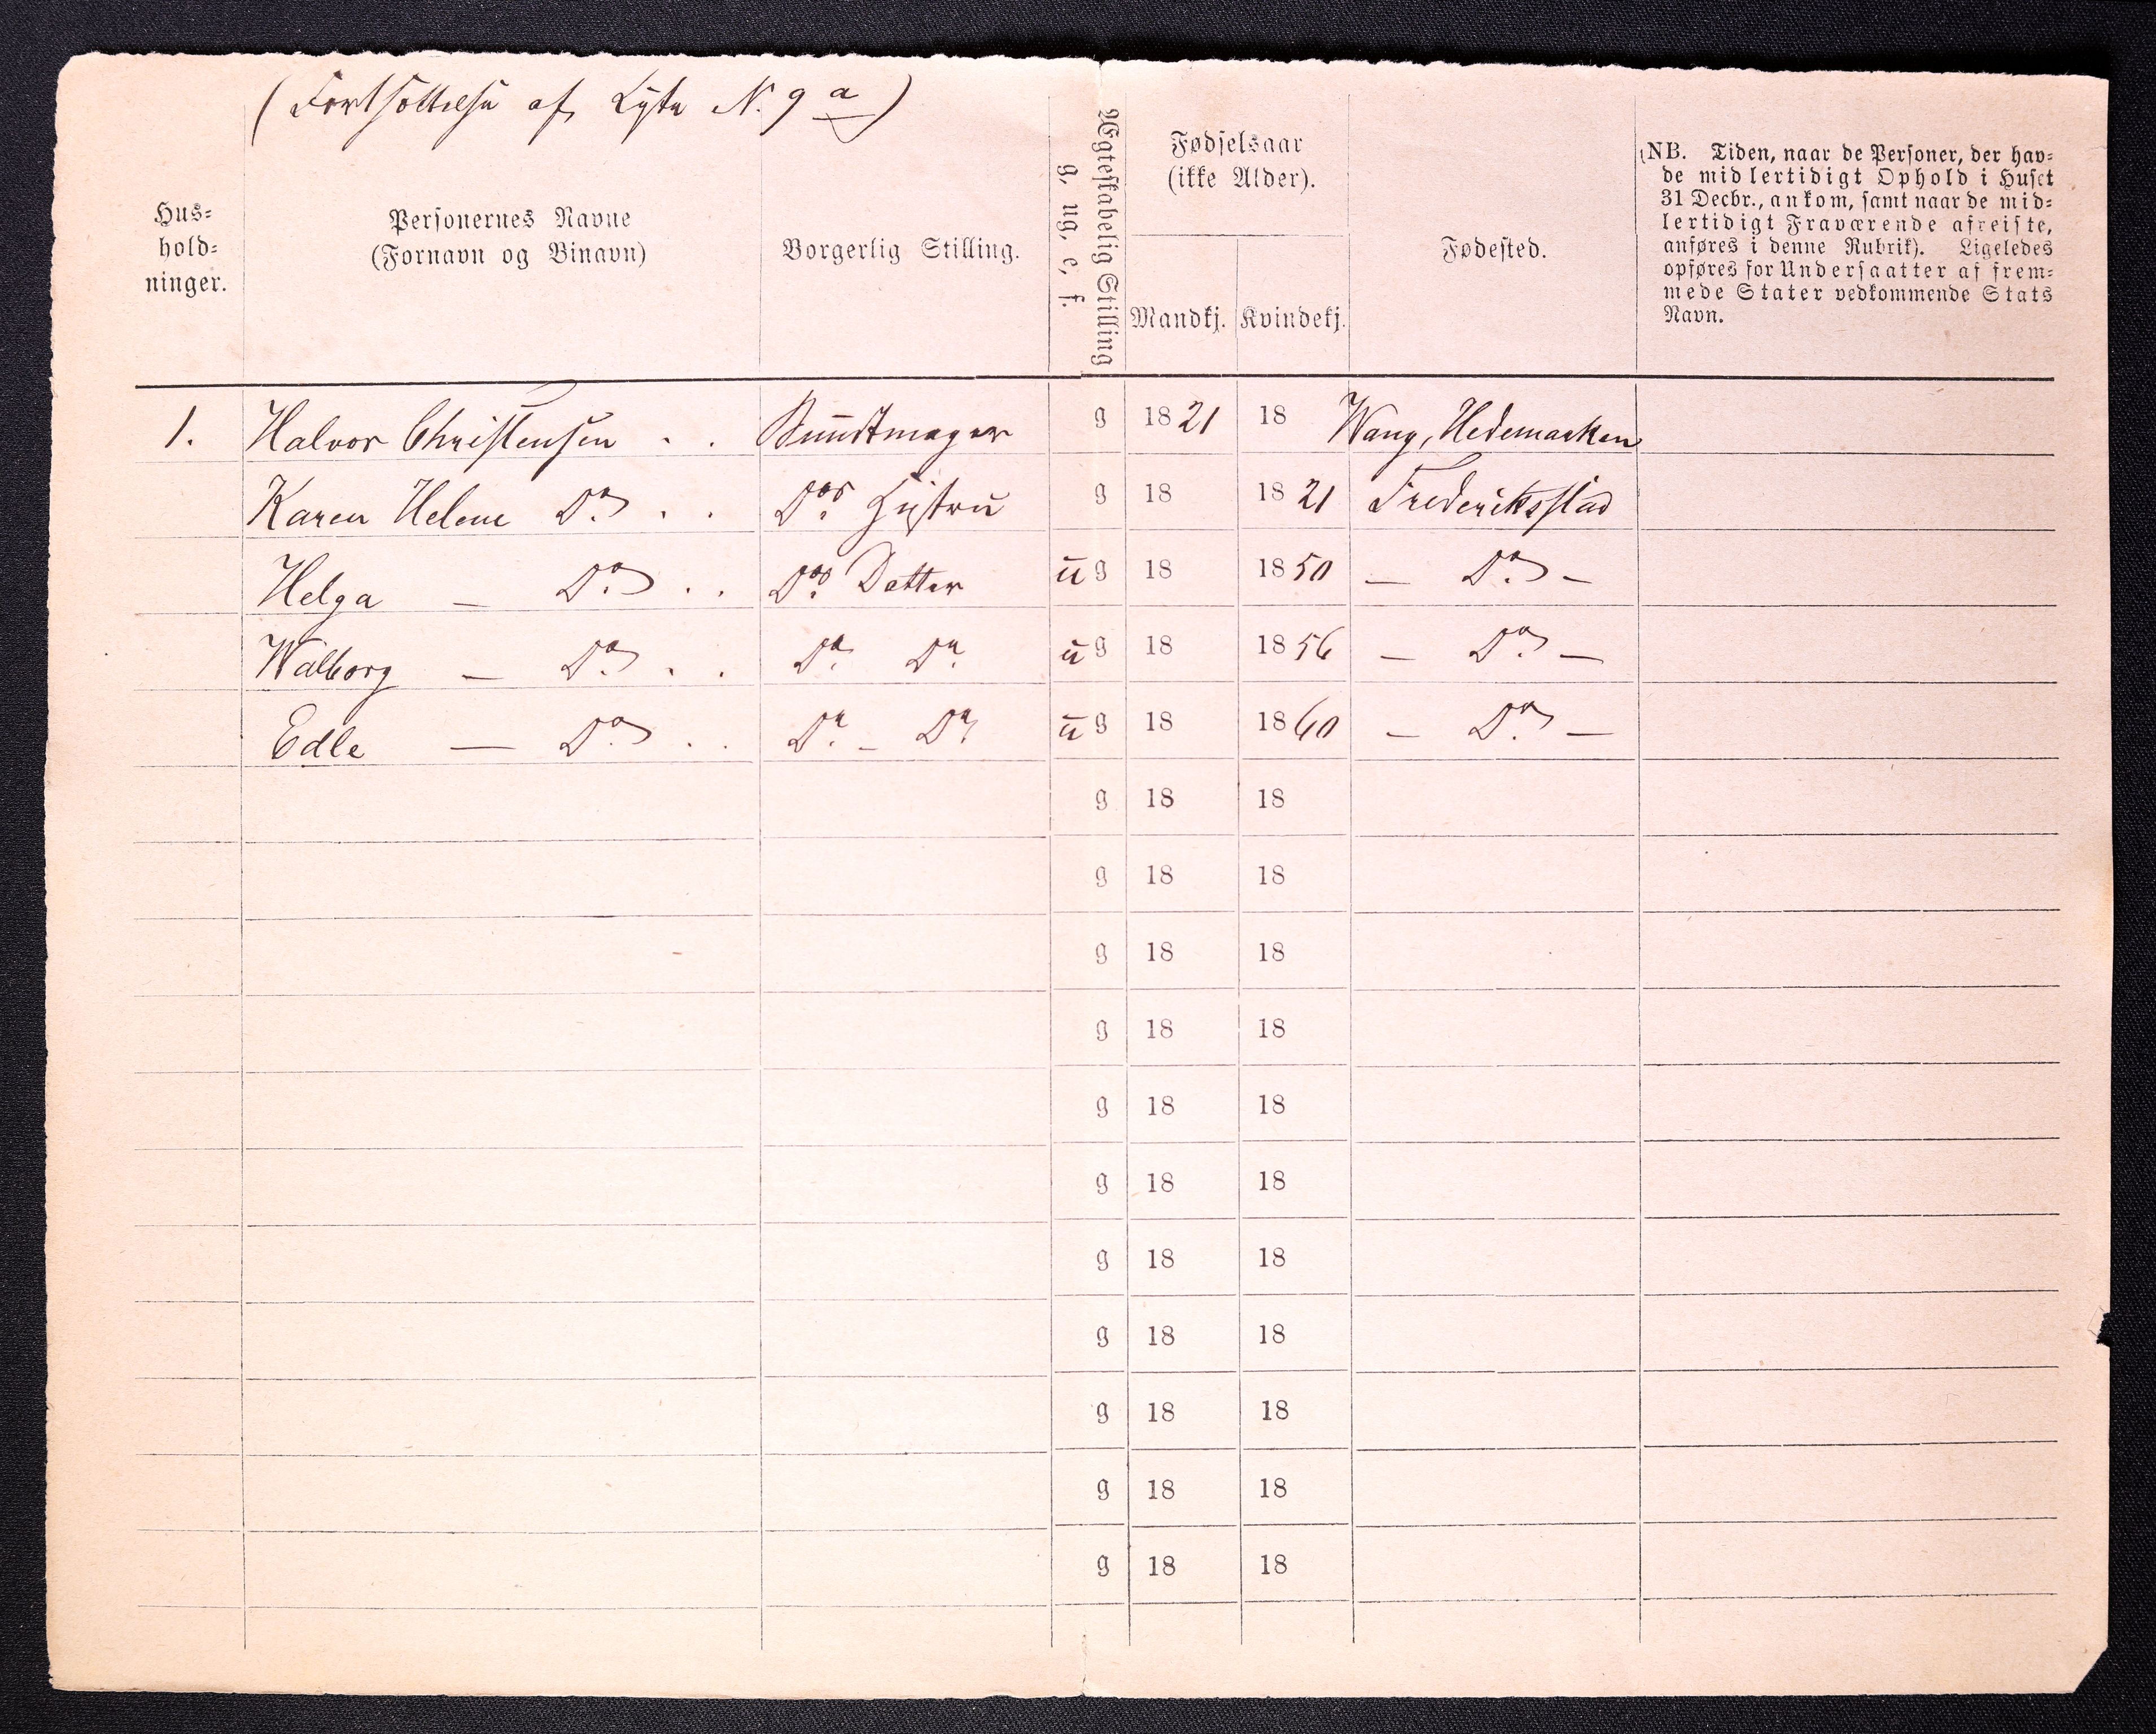 (Fortsættelse af Lyste N. 9 a)
Hus=
hold=
ninger.
Personernes Navne
(Fornavn og Binavn)
Borgerlig Stilling.
Ægteskabelig Stilling
g, ug, e, f.
Fødselsaar
(ikke Alder).
Mandkj. Kvindekj.
Fødested.
(NB. Tiden, naar de Personer, der hav=
de midlertidigt Ophold i Huset
31 Decbr., ankom, samt naar de mid=
lertidigt Fraværende afreiste,
anføres i denne Rubrik). Ligeledes
opføres for Undersaatter af frem=
mede Stater vedkommende Stats
Navn.
1. Halvor Christensen . . Bundtmager g 1821 18 Wang, Hedemarken
Karen Helene Do . . Dos Hustru g 18 1821 Frederiksstad
Helga — Do . . Dos Datter ug 18 1850 — Do —
Walborg — Do . . Do Do ug 18 1856 — Do —
Edle — Do . . Do — Do ug 18 1860 — Do —
g 18 18
g 18 18
g 18 18
g 18 18
g 18 18
g 18 18
g 18 18
g 18 18
g 18 18
g 18 18
g 18 18